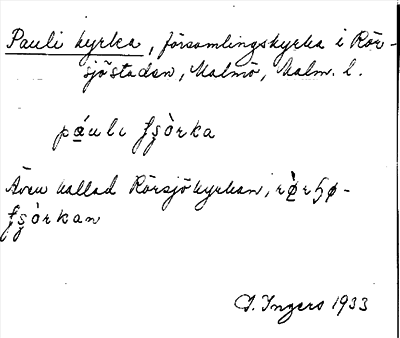 Pauli kyrka, församlingskyrka i Rör-
sjöstaden, Malmö, Malm. l.
páuli ʃʂòrka
Även kallad Rörsjökyrkan, rø̀rɧø-
ʃʂòrkan
I. Ingers 1933